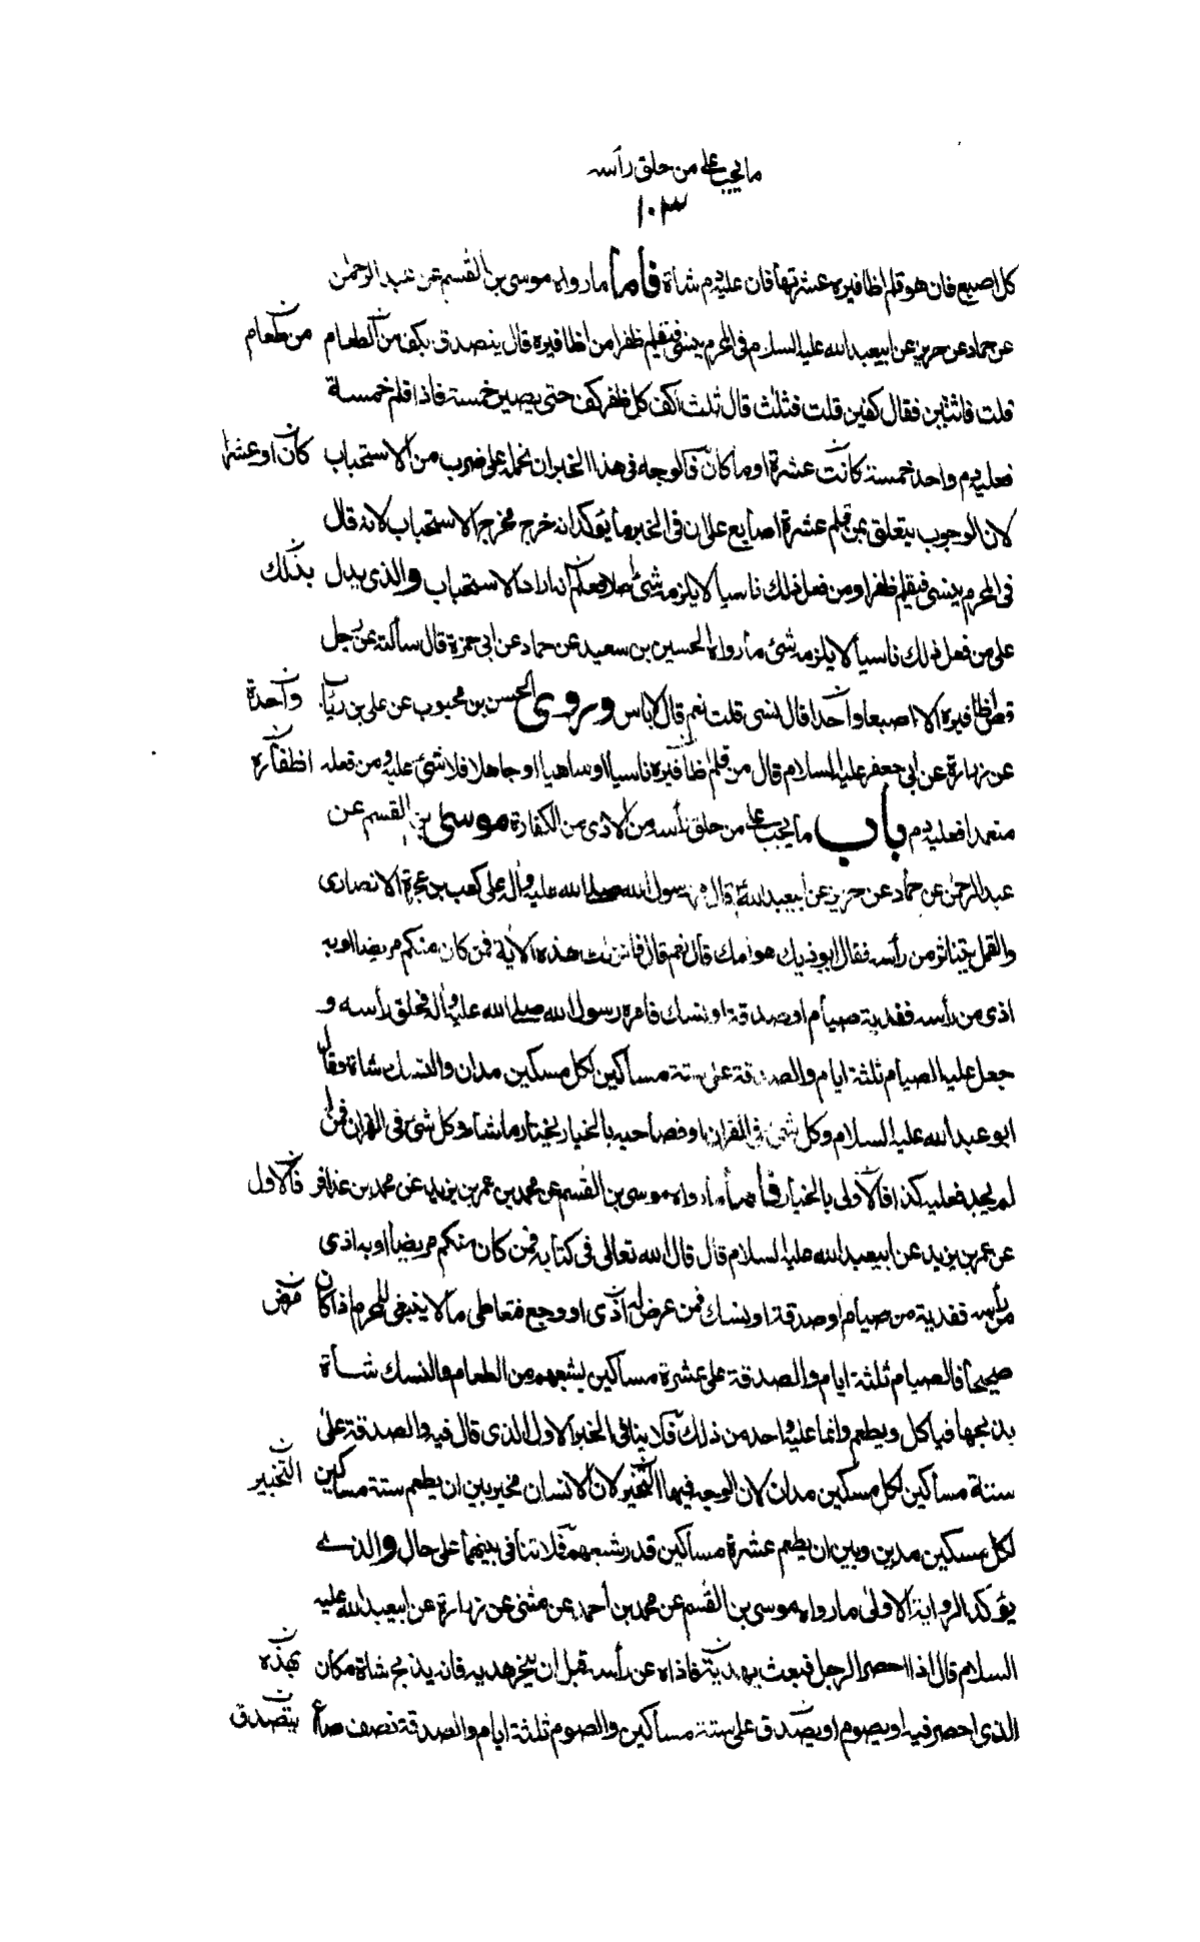 ما يجب على من حلق رأسه
١٠٣
كل اصبع فان هو قلم اظافيره عشرتها فان عليه دم شاة فأما ما رواه موسى بن القسم عن عبد الرحمن
عن حماد عن حريز عن ابيعبد الله عليه السلام في المحرم ينسى فيقلم ظفرا من اظافيره قال يتصدق بكف من الطعام من طعام
قلت فاثنتين فقال كفين قلت فثلث قال ثلث اكف كل ظفر كف حتى يصير خمسة فاذا قلم خمسة
فعليه دم واحد خمسة كانت عشرة او ما كان فالوجه في هذا الخبر ان نحمله على ضرب من الاستحباب كان او عشرا
لان الوجوب يتعلق بمن قلم عشرة اصابع على ان في الخبر ما يؤكد انه خرج مخرج الاستحباب لانه قال
في المحرم ينسى فيقلم ظفرا ومن فعل ذلك ناسيا لا يلزمه شئ اصلا فعلم انه اراد الاستحباب والذي يدل بذلك
على من فعل ذلك ناسيا لا يلزمه شئ ما رواه الحسين بن سعيد عن حماد عن ابي حمزة قال سألته عن رجل
قص اظافيره الا اصبعا واحدا قال نسى قلت نعم قال لا باس وروى الحسن بن محبوب عن علي بن رئاب واحدة
عن زرارة عن ابي جعفر عليه السلام قال من قلم اظافيره ناسيا او ساهيا او جاهلا فلا شئ عليه ومن فعله اظفاره
متعمدا فعليه دم باب ما يجب على من حلق رأسه من الاذى من الكفارة موسى بن القسم عن
عبد الرحمن عن حماد عن حريز عن ابيعبد الله قال مر رسول الله صلى الله عليه وآله على كعب بن عجرة الانصاري
والقمل يتناثر من رأسه فقال ايوذيك هوامك قال نعم قال فانزلت هذه الآية فمن كان منكم مريضا او به
اذى من رأسه ففدية صيام او صدقة او نسك فامره رسول الله صلى الله عليه وآله فحلق رأسه و
جعل عليه الصيام ثلثة ايام والصدقة على ستة مساكين لكل مسكين مدان والنسك شاة وقال
ابو عبد الله عليه السلام وكل شئ في القرآن او فصاحبه بالخيار يختار ما شاء وكل شئ في القرآن فمن
لم يجد فعليه كذا فالاولى بالخيار فأما ما رواه موسى بن القسم عن محمد بن عمر بن يزيد عن محمد بن عذافر فالاول
عن عمر بن يزيد عن ابيعبد الله عليه السلام قال قال الله تعالى في كتابه فمن كان منكم مريضا او به اذى
من رأسه ففدية من صيام او صدقة او نسك فمن عرض له اذى او وجع فتعاطى ما لا ينبغي للمحرم اذا كان
صحيحا فالصيام ثلثة ايام والصدقة على عشرة مساكين يشبعهم من الطعام والنسك شاة
يذبحها فيأكل ويطعم وانما عليه واحد من ذلك فلا ينافي الخبر الاول الذي قال فيه والصدقة على
ستة مساكين لكل مسكين مدان لان الوجه فيهما التخير لان الانسان مخير بين ان يطعم ستة مساكين التخيير
لكل مسكين مدين وبين ان يطعم عشرة مساكين قدر شبعهم فلا تنافي بينهما على حال والذي
يؤكد الرواية الاولى ما رواه موسى بن القسم عن محمد بن احمد عن مثنى عن زرارة عن ابيعبد الله عليه
السلام قال اذا احصر الرجل فبعث بهديه فاذاه عن رأسه قبل ان ينحر هديه فانه يذبح شاة مكان بهذه
الذي احصر فيه او يصوم او يصدق على ستة مساكين والصوم ثلثة ايام والصدقة نصف صاع يتصدق